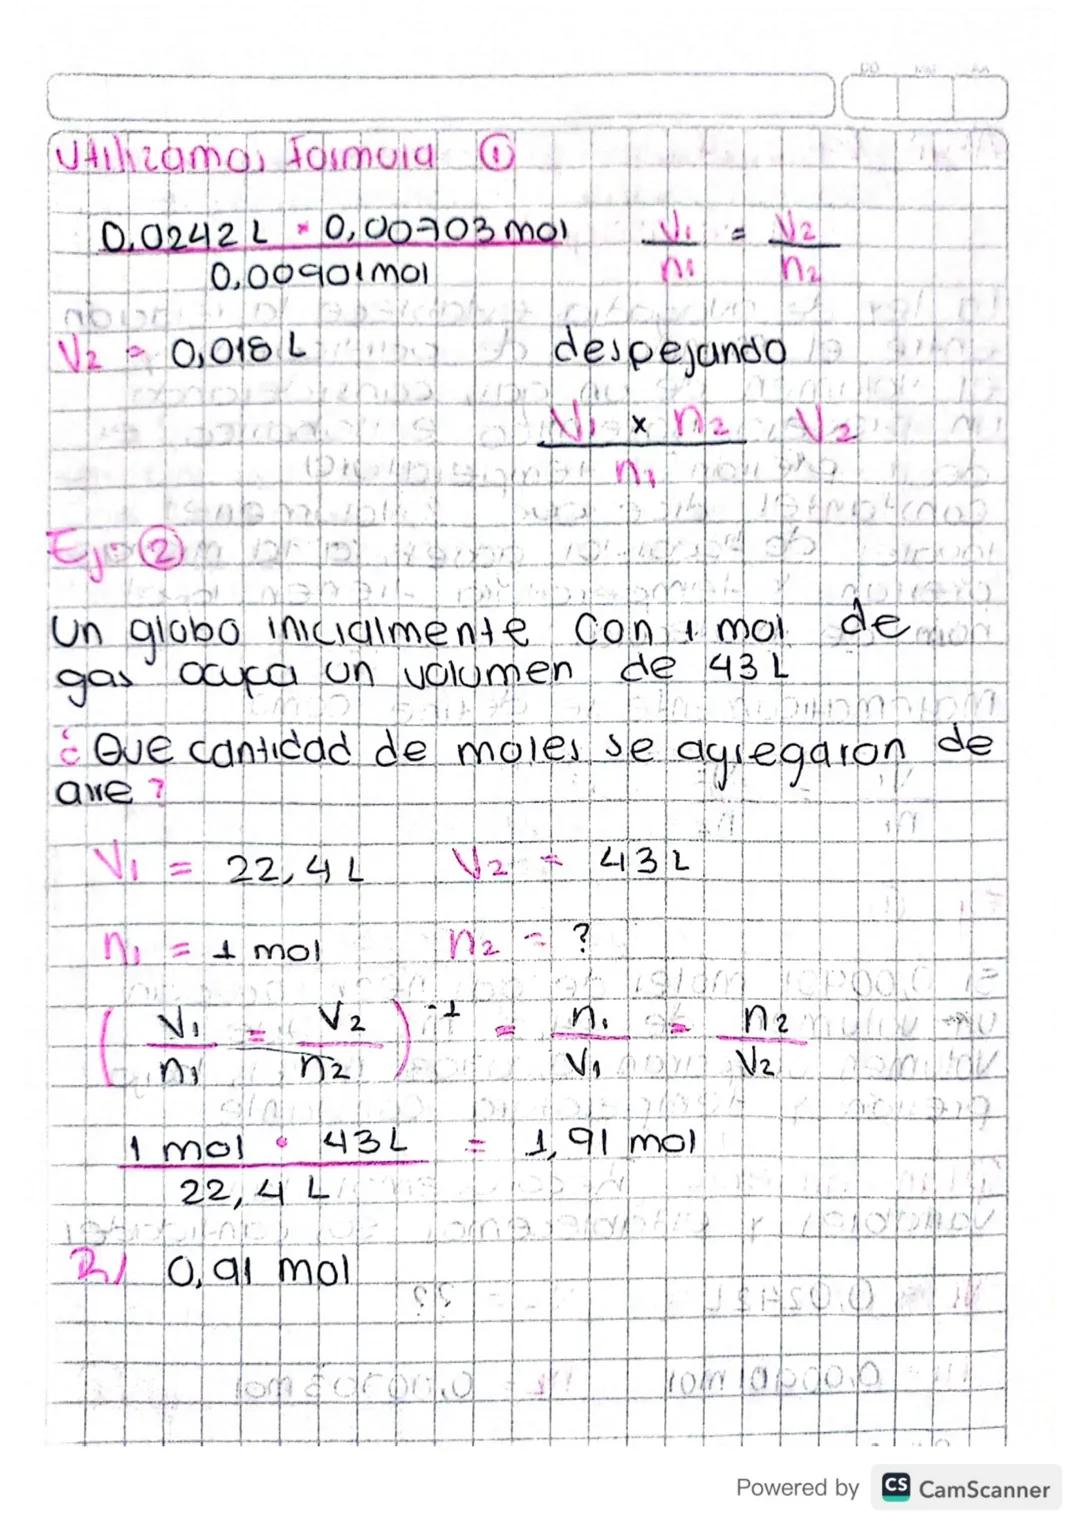 Utilizamos formula ①
0.0242 L * 0,00703 mol
0,00901 mol
V₁ = V₂
n₁ n₂
V₂ = 0,018 L
despejando
V₁ x n₂ V₂
n₁
Ej: ②
Un globo inicialmente con 1 mol de
gas ocupa un volumen de 43 L
¿ Que cantidad de moles se agregaron de
aire ?
V₁ = 22,4 L V₂ = 43 L
n₁ = 1 mol n₂ = ?
( V₁ = V₂ )⁻¹ = n₁ = n₂
n₁ n₂ V₁ V₂
1 mol • 43 L = 1,91 mol
22,4 L
R/ 0,91 mol
Powered by CS CamScanner